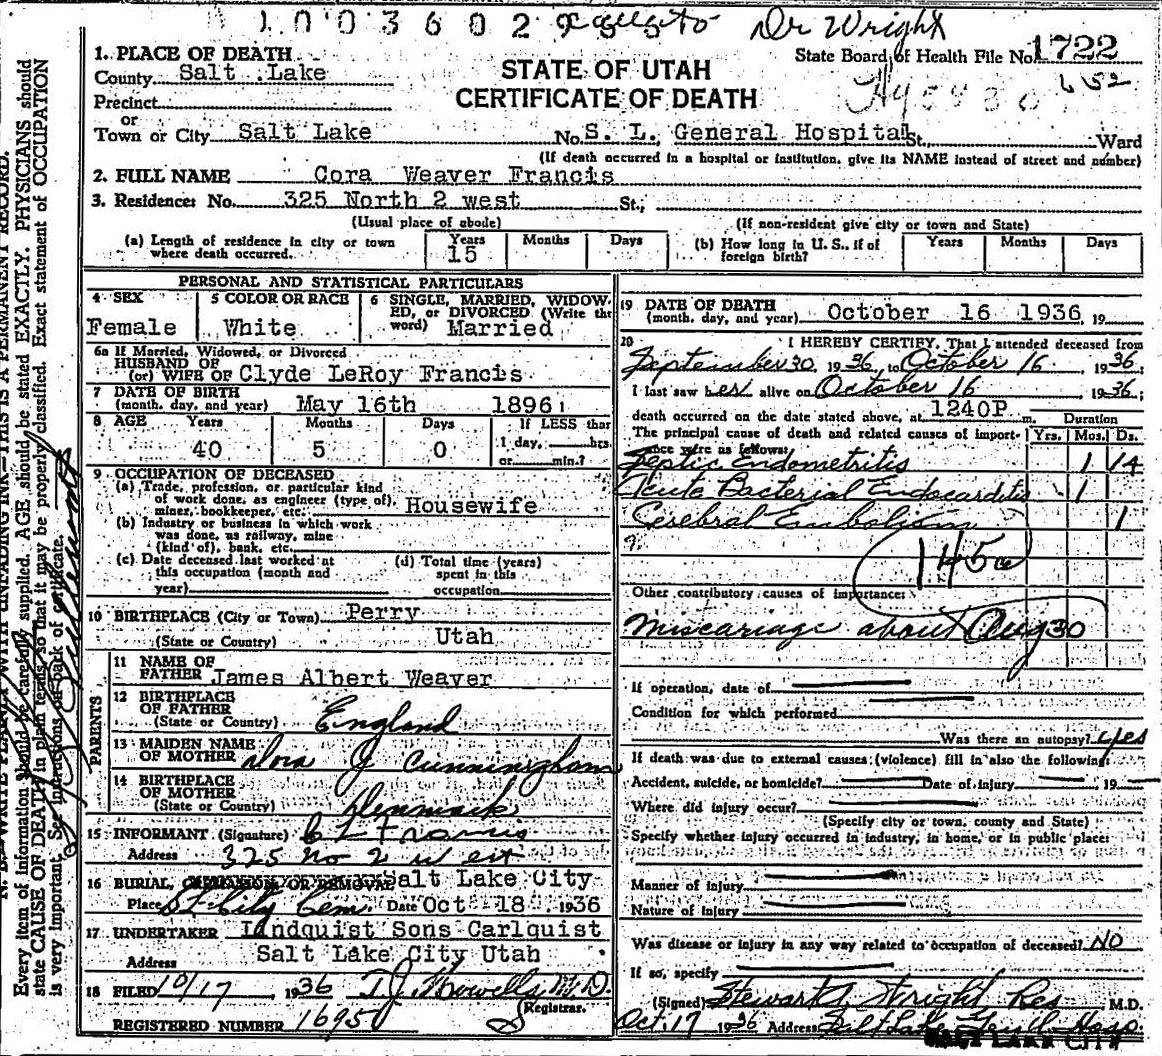 1003602
Dr Wright
State Board of Health File No. 1722
1. PLACE OF DEATH
County Salt Lake
STATE OF UTAH
CERTIFICATE OF DEATH
Precinct
or
Town or City Salt Lake No. S. L. General Hospital St., Ward
(If death occurred in a hospital or institution, give its NAME instead of street and number)
2. FULL NAME Cora Weaver Francis
3. Residence: No. 325 North 2 west St.,
(Usual place of abode) (If non-resident give city or town and State)
(a) Length of residence in city or town where death occurred. Years 15 Months Days
(b) How long in U. S., if of foreign birth? Years Months Days
PERSONAL AND STATISTICAL PARTICULARS
4 SEX Female
5 COLOR OR RACE White
6 SINGLE, MARRIED, WIDOWED, or DIVORCED (Write the word) Married
6a If Married, Widowed, or Divorced
HUSBAND OF
(or) WIFE OF Clyde LeRoy Francis
7 DATE OF BIRTH
(month, day, and year) May 16th 1896
8 AGE Years 40 Months 5 Days 0 If LESS than 1 day, hrs. or min.?
9 OCCUPATION OF DECEASED
(a) Trade, profession, or particular kind
of work done, as engineer (type of),
miner, bookkeeper, etc. Housewife
(b) Industry or business in which work
was done, as railway, mine
(kind of), bank, etc.
(c) Date deceased last worked at
this occupation (month and
year)
(d) Total time (years)
spent in this
occupation
10 BIRTHPLACE (City or Town) Perry
(State or Country) Utah
PARENTS
11 NAME OF
FATHER James Albert Weaver
12 BIRTHPLACE
OF FATHER
(State or Country) England
13 MAIDEN NAME
OF MOTHER Dora J Cunningham
14 BIRTHPLACE
OF MOTHER
(State or Country) Denmark
15 INFORMANT (Signature) C L Francis
Address 325 No 2 West
16 BURIAL, CREMATION, OR REMOVAL Salt Lake City
Place SL City Cem. Date Oct 18 1936
17 UNDERTAKER Lindquist Sons Carlquist
Address Salt Lake City Utah
18 FILED 10/17 1936 T.J. Howells M.D.
Registrar.
REGISTERED NUMBER 1695
19 DATE OF DEATH
(month, day, and year) October 16 1936, 19
20 I HEREBY CERTIFY, That I attended deceased from
September 30 1936, to October 16, 1936.
I last saw her alive on October 16, 1936;
death occurred on the date stated above, at 1240P m. Duration
The principal cause of death and related causes of importance were as follows: Yrs. Mos. Ds.
Septic Endometritis 1 14
Acute Bacterial Endocarditis 1
Cerebral Embolism 1
145a
Other contributory causes of importance:
Miscariage about Aug 30
If operation, date of
Condition for which performed
Was there an autopsy? yes
If death was due to external causes (violence) fill in also the following:
Accident, suicide, or homicide? Date of injury 19
Where did injury occur?
(Specify city or town, county and State)
Specify whether injury occurred in industry, in home, or in public place:
Manner of Injury
Nature of Injury
Was disease or injury in any way related to occupation of deceased? NO
If so, specify
(Signed) Stewart A. Wright Res M.D.
Oct. 17 1936 Address Salt Lake Gen'l. Hosp.
SALT LAKE CITY
N. B.—WRITE PLAINLY WITH UNFADING INK—THIS IS A PERMANENT RECORD.
Every item of information should be carefully supplied. AGE should be stated EXACTLY. PHYSICIANS should
state CAUSE OF DEATH in plain terms, so that it may be properly classified. Exact statement of OCCUPATION
is very important. See instructions on back of certificate.